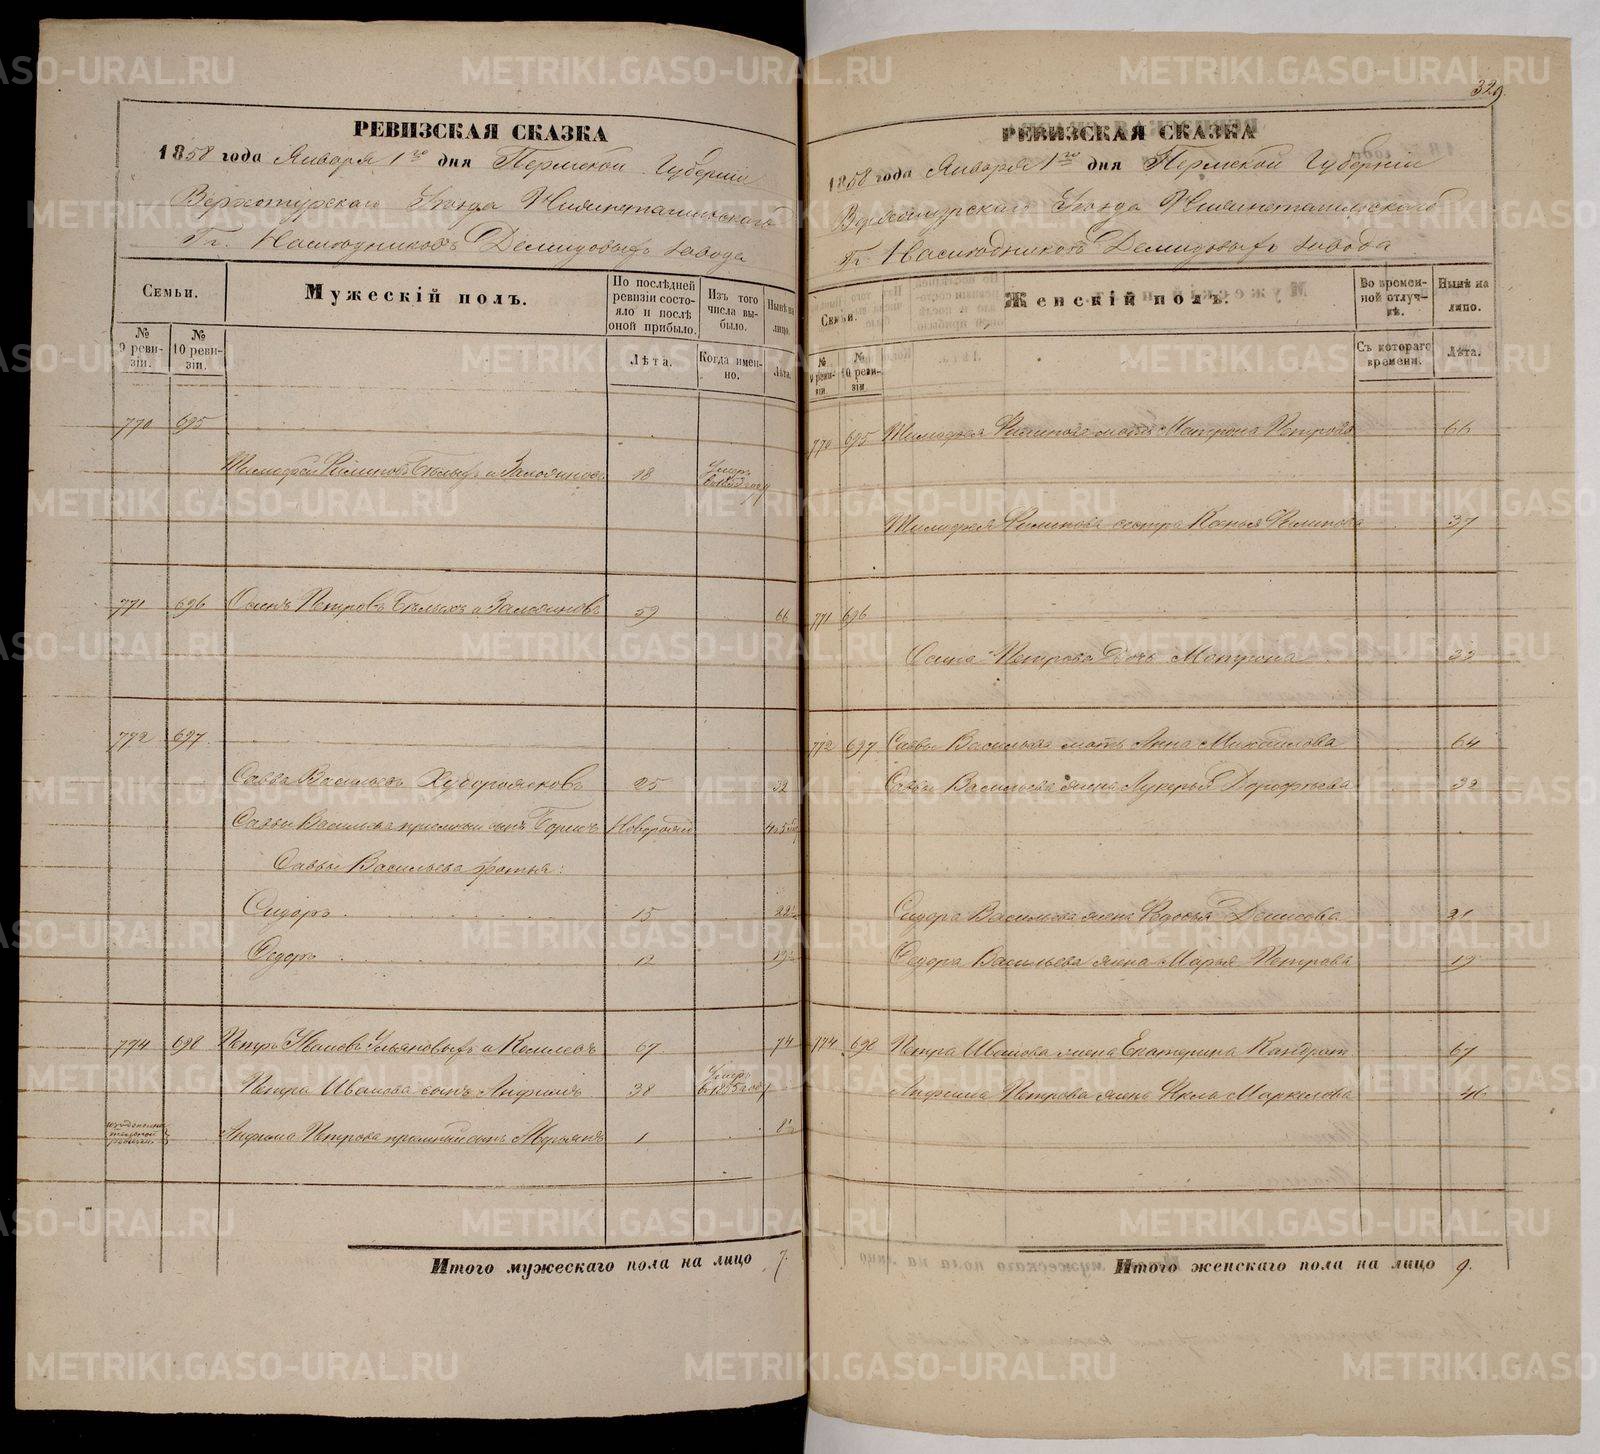 329.
РЕВИЗСКАЯ СКАЗКА
1858 года Января 1го дня Пермской Губернiи
Верхотурскаго Уѣзда Нижнетагильскаго
Гг. Наслѣдниковъ Демидовыхъ завода
Семьи.
Мужескiй полъ.
По послѣдней ревизiи состояло и послѣ оной прибыло.
Изъ того числа выбыло.
Нынѣ на лицо.
№ 9 ревизiи.
№ 10 ревизiи.
Лѣта.
Когда именно.
Лѣта.
770 695
Тимофей Филиповъ Бѣлыхъ и Заложниковъ 18 Умеръ въ году
771 696 Осипъ Петровъ Бѣлыхъ и 59 66
772 697
Савва Васильевъ Худорожковъ 25 32
Саввы Васильева прiемный сынъ Борисъ Новорожд
Саввы Васильева братья:
Сидоръ 15 22½
Ѳедоръ 12 19½
774 698 Петръ Ивановъ Ульяновыхъ и 67 74
Петра Иванова сынъ Анфимъ 38 Умеръ въ 1855 году
Анфима Петрова прiемный сынъ 1 8½
Итого мужескаго пола на лицо 7.
РЕВИЗСКАЯ СКАЗКА
1858 года Января 1го дня Пермской Губернiи
Верхотурскаго Уѣзда Нижнетагильскаго
Гг. Наслѣдниковъ Демидовыхъ завода
Семьи.
Женскiй полъ.
Во временной отлучкѣ.
Нынѣ на лицо.
№ 9 ревизiи
№ 10 ревизiи
Съ котораго времени.
Лѣта.
770 695 Тимофея Филипова мать Матрона Петрова 66
Тимофея Филипова сестра Ксенья Филипова 37
771 696
Осипа Петрова дочь Матрона 33
772 697 Саввы Васильева мать Анна Михайлова 64
Саввы Васильева жена Лукерья Дорофѣева 32
Сидора Васильева жена Ѳедосья Денисова 21
Ѳедора Васильева жена Марья Петрова 19
774 698 Петра Иванова жена Екатерина Кондрат 67
Анфима Петрова жена Ѳекла Маркелова 46
Итого женскаго пола на лицо 9.
METRIKI.GASO-URAL.RU